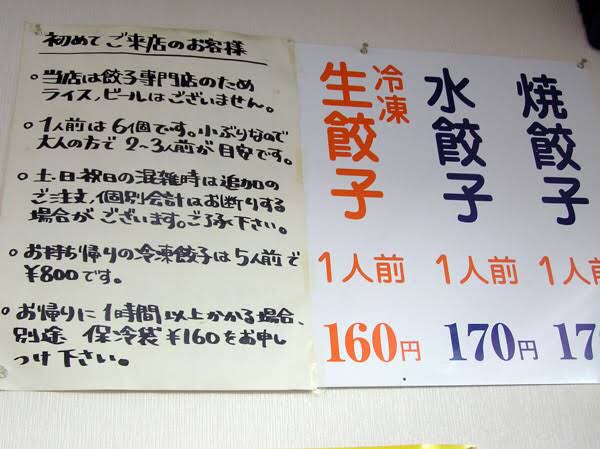 初めてご来店のお客様
○当店は餃子専門店のため
ライス,ビールはございません。
○1人前は6個です。小ぶりなので
大人の方で2~3人前が目安です。
○土・日・祝日の混雑時は追加の
ご注文,個別会計はお断りする
場合がございます。ご了承下さい。
○お持ち帰りの冷凍餃子は5人前で
¥800です。
○お帰りに1時間以上かかる場合、
別途 保冷袋¥160をお申し
つけ下さい。
冷凍
生餃子
1人前
160円
水餃子
1人前
170円
焼餃子
1人前
17